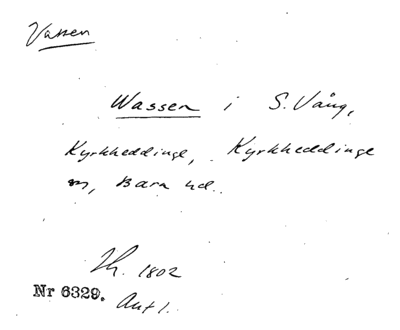 Vassen
Wassen i S. Vång,
Kyrkheddinge, Kyrkheddinge
sn, Bara hd.
Lh. 1802
Nr 6329. Akt 1.